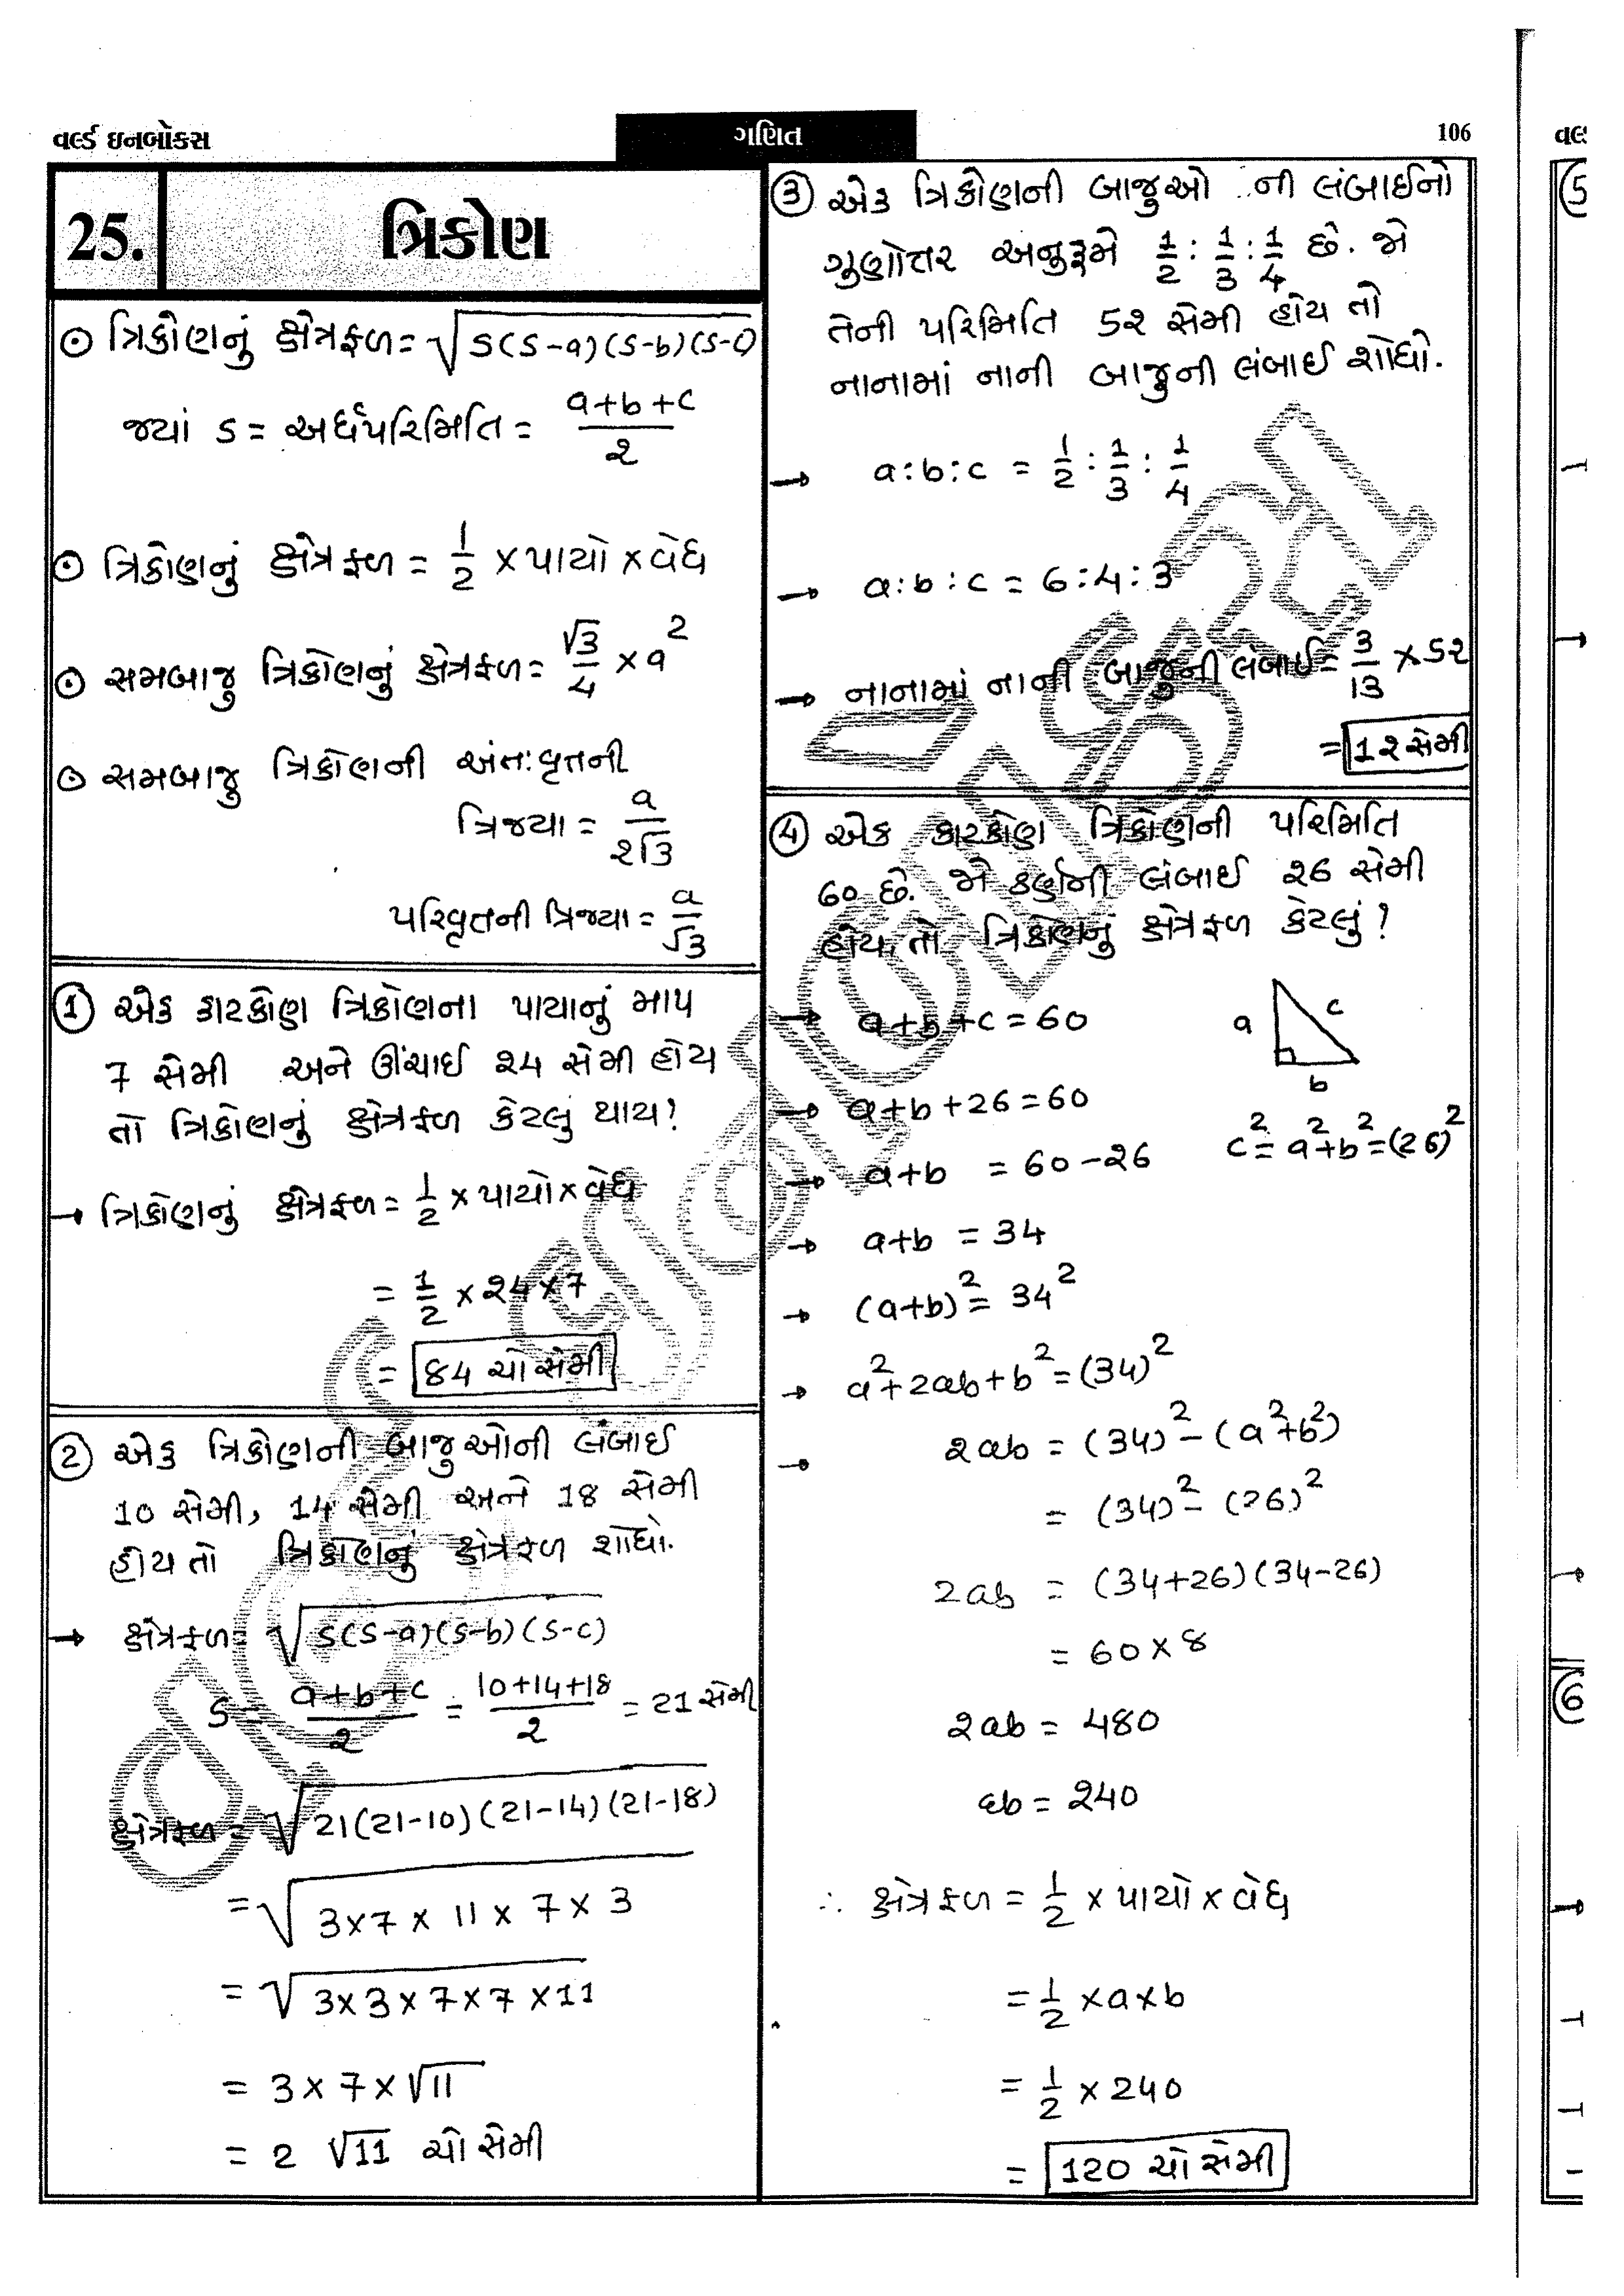 વર્લ્ડ ઇનબોક્સ
ગણિત
106
25.
ત્રિકોણ
⊙ ત્રિકોણનું ક્ષેત્રફળ = √S(S-a)(S-b)(S-c)
જ્યાં S = અર્ધપરિમિતિ = a+b+c/2
⊙ ત્રિકોણનું ક્ષેત્રફળ = 1/2 × પાયો × વેધ
⊙ સમબાજુ ત્રિકોણનું ક્ષેત્રફળ = √3/4 × a²
⊙ સમબાજુ ત્રિકોણની અંતઃવૃતની
ત્રિજયા = a/૨√3
પરિવૃતની ત્રિજ્યા = a/√3
① એક કાટકોણ ત્રિકોણના પાયાનું માપ
7 સેમી અને ઊંચાઈ ૨4 સેમી હોય
તો ત્રિકોણનું ક્ષેત્રફળ કેટલું થાય?
→ ત્રિકોણનું ક્ષેત્રફળ = 1/2 × પાયો × વેધ
= 1/2 × ૨4 × 7
= 84 ચો સેમી
② એક ત્રિકોણની બાજુઓની લંબાઈ
10 સેમી, 14 સેમી અને 18 સેમી
હોય તો ત્રિકોણનું ક્ષેત્રફળ શોધો.
→ ક્ષેત્રફળ = √S(S-a)(S-b)(S-c)
S = a+b+c/૨ = 10+14+18/૨ = 21 સેમી
ક્ષેત્રફળ = √21(21-10)(21-14)(21-18)
= √3×7 × 11 × 7 × 3
= √3×3×7×7×11
= 3×7×√11
= 2 √11 ચો સેમી
③ એક ત્રિકોણની બાજુઓ ની લંબાઈનો
ગુણોત્તર અનુક્રમે 1/2 : 1/3 : 1/4 છે. જો
તેની પરિમિતિ 5૨ સેમી હોય તો
નાનામાં નાની બાજુની લંબાઈ શોધો.
→ a:b:c = 1/2 : 1/3 : 1/4
→ a:b:c = 6:4:3
→ નાનામાં નાની બાજુની લંબાઈ = 3/13 × 5૨
= 1૨ સેમી
④ એક કાટકોણ ત્રિકોણની પરિમિતિ
60 છે. જો કર્ણની લંબાઈ ૨6 સેમી
હોય, તો ત્રિકોણનું ક્ષેત્રફળ કેટલું?
→ a+b+c = 60
a
c
b
→ a+b+26 = 60
→ a+b = 60-૨6
c² = a²+b² = (26)²
→ a+b = 34
→ (a+b)² = 34²
→ a²+2ab+b² = (34)²
→ ૨ab = (34)² - (a²+b²)
= (34)² - (26)²
2ab = (34+26)(34-26)
= 60×8
૨ab = 480
ab = ૨40
∴ ક્ષેત્રફળ = 1/2 × પાયો × વેધ
= 1/2 × a × b
= 1/2 × 240
= 120 ચો સેમી
5
6